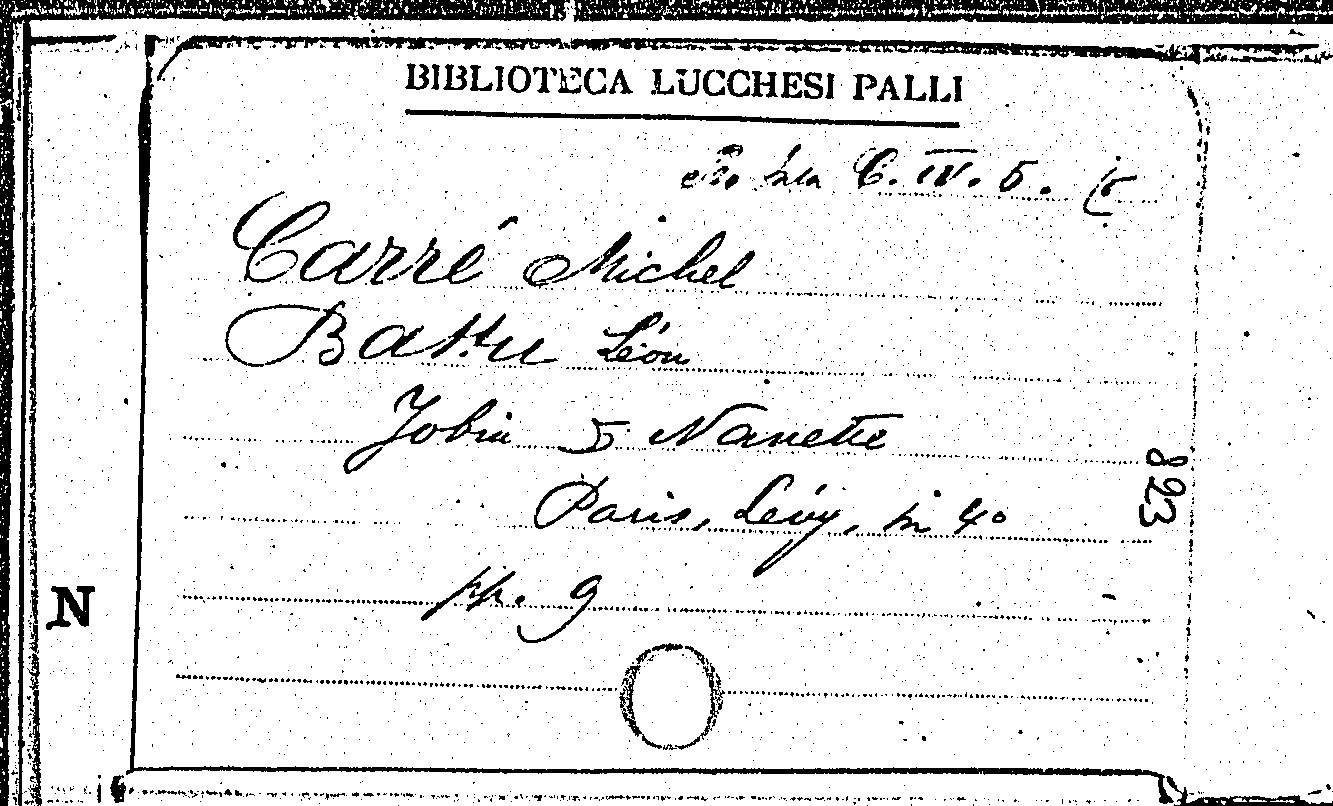 BIBLIOTECA LUCCHESI PALLI
C. IV. 5.
Carré Michel
Battu Léon
Jobin & Nanette
Paris, Lévy, in 4º
pp. 9
823
N